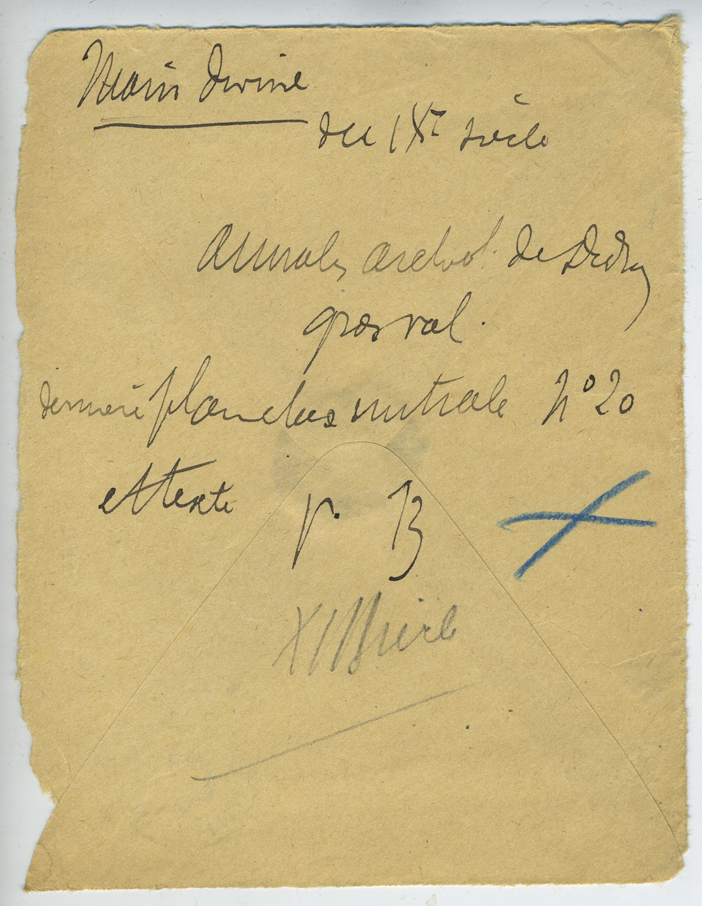 Main divine
du IXe siècle
Annales archeol. de Didron
gros vol.
derniere planches initiale No 20
et texte p. 13
siècle